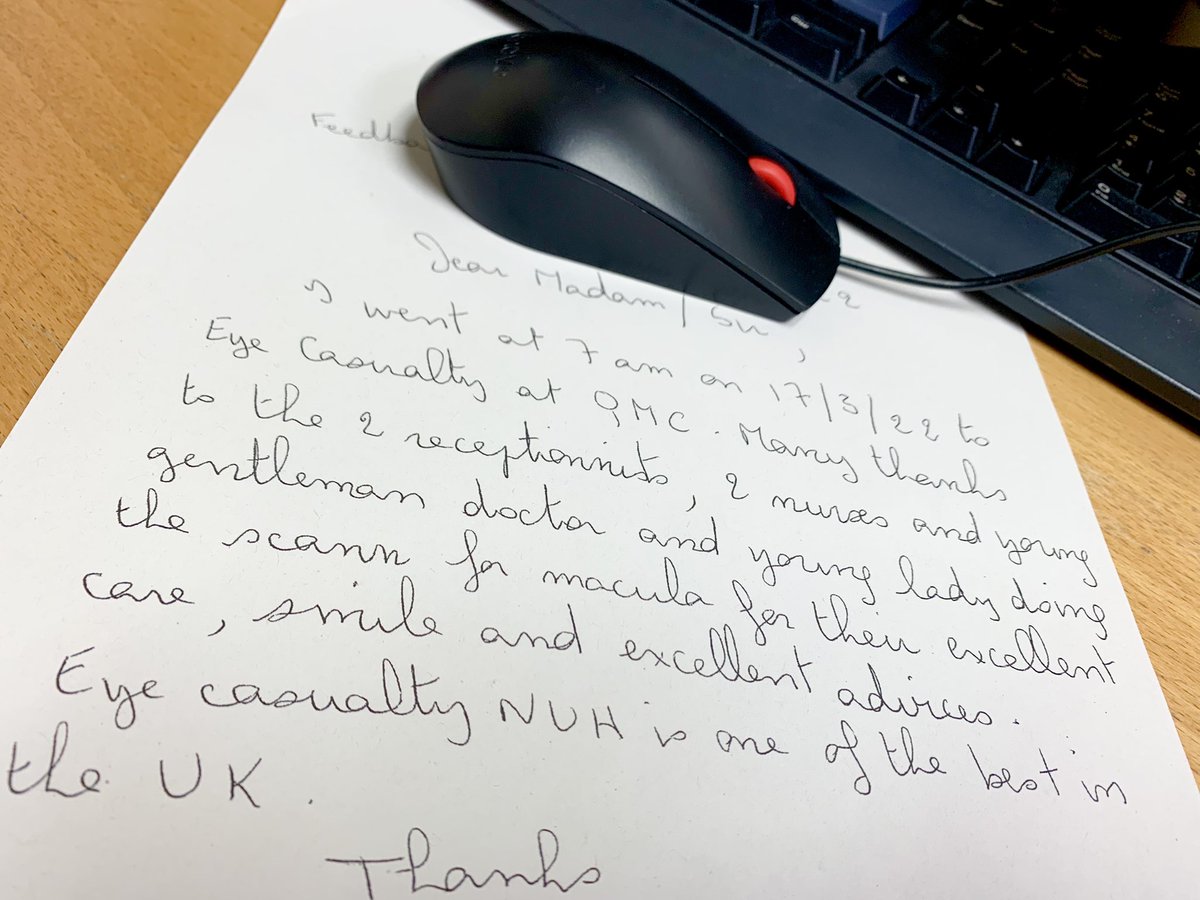 Feedba
Dear Madam / Sir,
I went at 7 am on 17/3/22 to
Eye Casualty at QMC. Many thanks
to the 2 receptionnists, 2 nurses and young
gentleman doctor and young lady doing
the scann for macula for their excellent
care, smile and excellent advices.
Eye casualty NUH is one of the best in
the UK.
Thanks